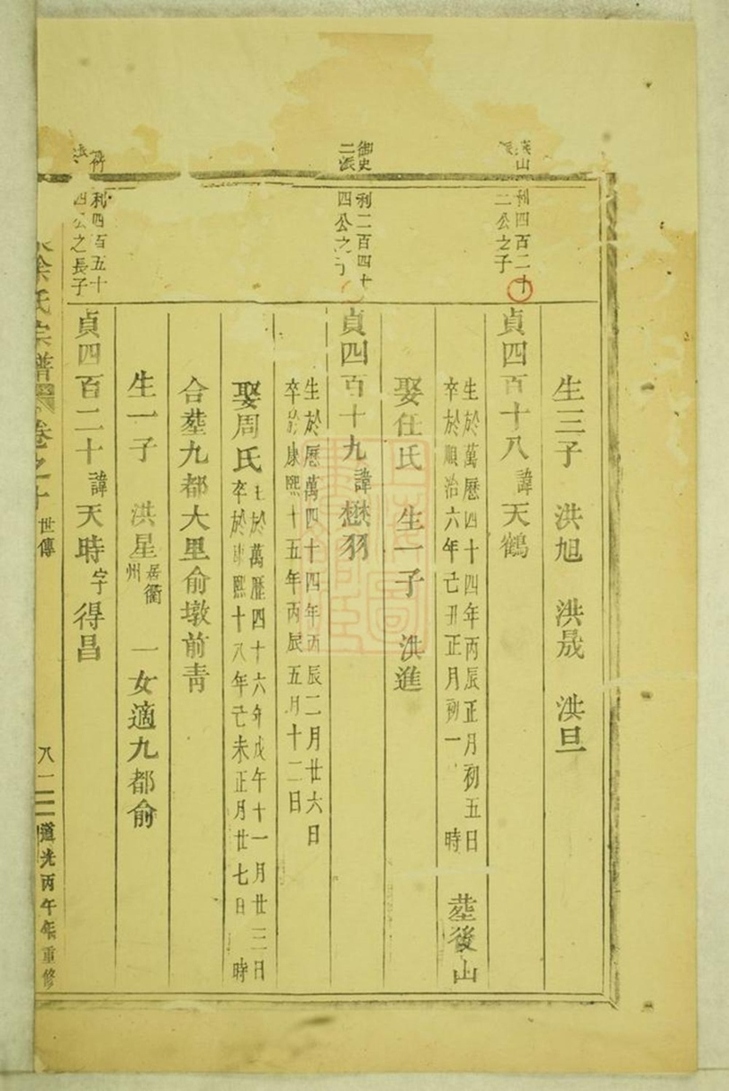 生三子 洪旭 洪晟 洪旦
英山
利四百二十
二公之子
貞四百十八 諱天鶴
生於萬歷四十四年丙辰正月初五日
卒於順治六年己丑正月初一 時 塟後山
娶任氏 生一子 洪進
御史
二派
利二百四十
四公之子
貞四百十九 諱懋羽
生於歷萬四十四年丙辰二月廿六日
卒於康熙十五年丙辰五月十二日
娶周氏
生於萬歷四十六年戊午十一月廿三日
卒於康熙十八年己未正月廿七日 時
合塟九都大里俞墩前靑
生一子 洪星 居衢州 一女適九都俞
利四百五十
四公之長子
貞四百二十 諱天時 字得昌
徐氏宗譜 卷之十 世傳 道光丙午年重修